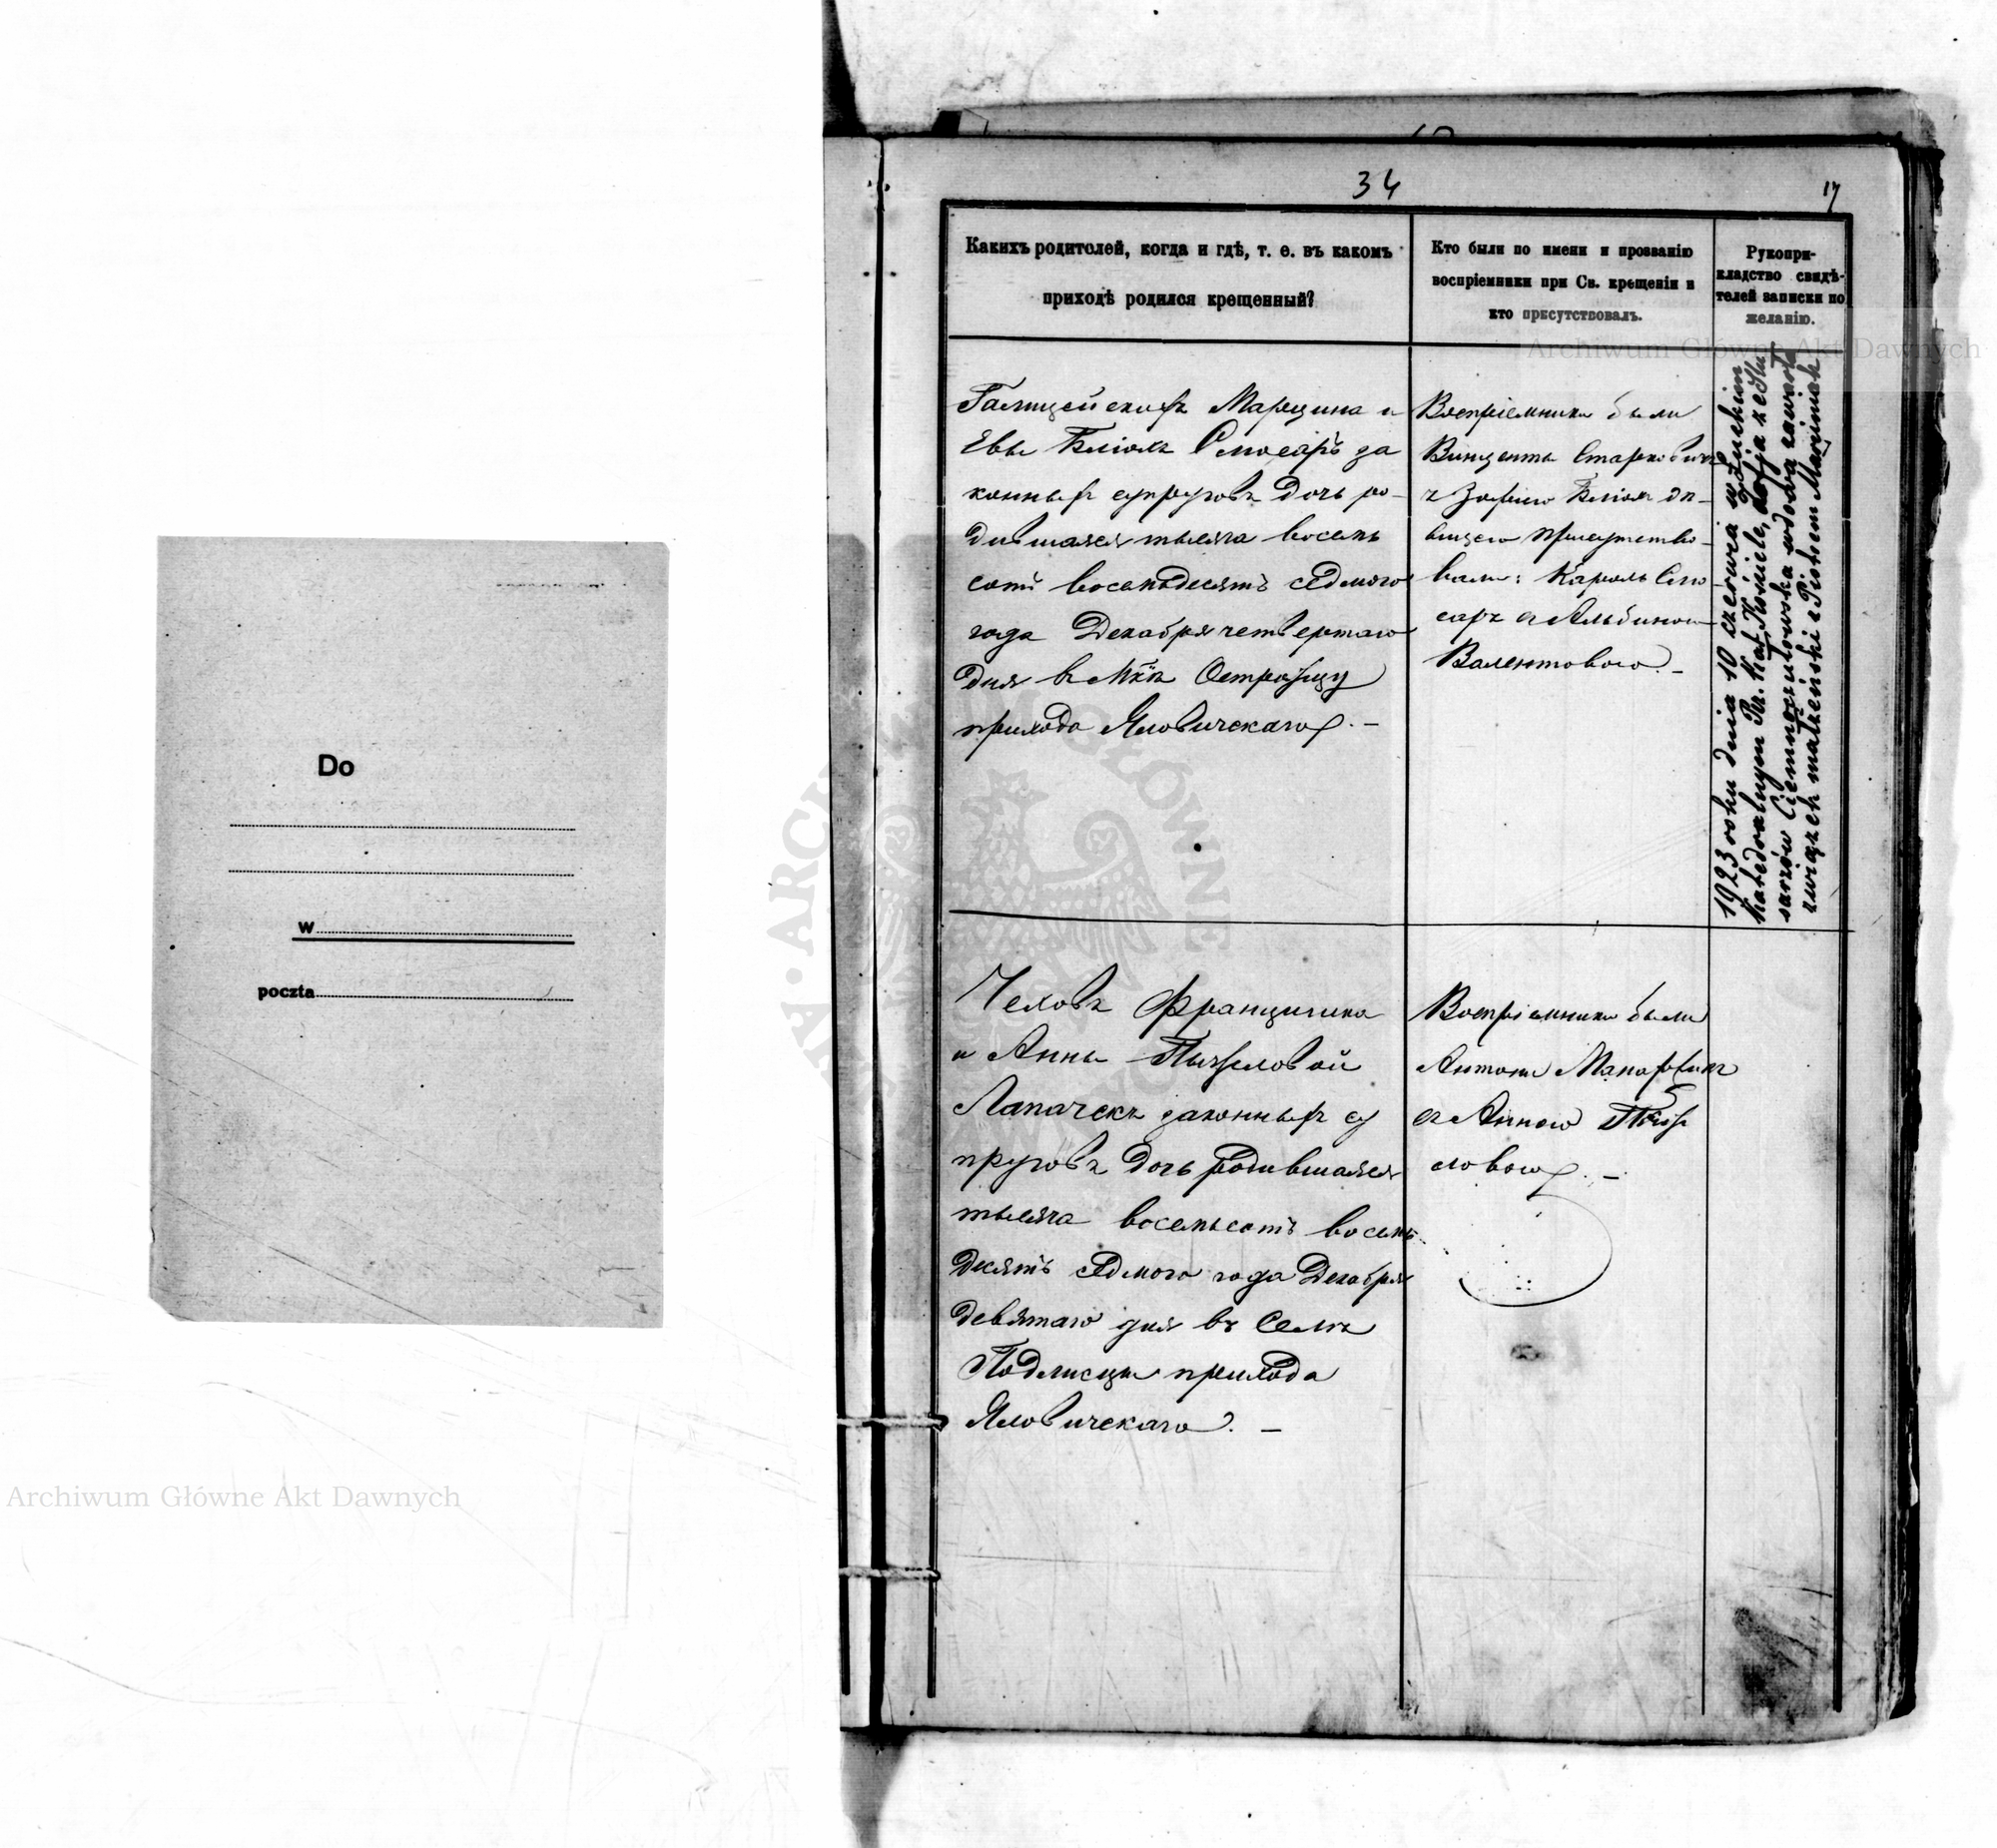 Do
w
poczta
34
17
Какихъ родителей, когда и гдѣ, т. е. въ какомъ
приходѣ родился крещенный?
Кто были по имени и прозванію
воспріемники при Св. крещеніи и
кто присутствовалъ.
Рукопри-
кладство свидѣ-
телей записки по
желанію.
Галицейскихъ Марцина и
Евы Слюсаръ за
конныхъ супруговъ дочь ро-
дившаяся тысяча восемь
сотъ восемьдесятъ седмого
года Декабря четвертаго
дня въ Острожцу
прихода Яловичскаго. —
Воспріемники были
Винценты Старкевичъ
съ Зофіею дѣ-
вицею присутство-
вали: Кароль Слю
саръ съ Альбиною
Валентовою. —
1923 roku dnia 10 czerwca w Łuckim
Katedralnym Rz. Kat. Kościele, Zofja z
Ciemnoczołowska wdowa zawarła
związek małżeński z Piotrem Martiniak
Чеховъ Францишка
и Анны
Лапачекъ законныхъ су
пруговъ дочь родившаяся
тысяча восемьсотъ восемь
десятъ седмого года Декабря
девятаго дня въ Селѣ
Подлисцы прихода
Яловичскаго. —
Воспріемники были
Антони
съ Анною
ловою. —
Archiwum Główne Akt Dawnych
Archiwum Główne Akt Dawnych